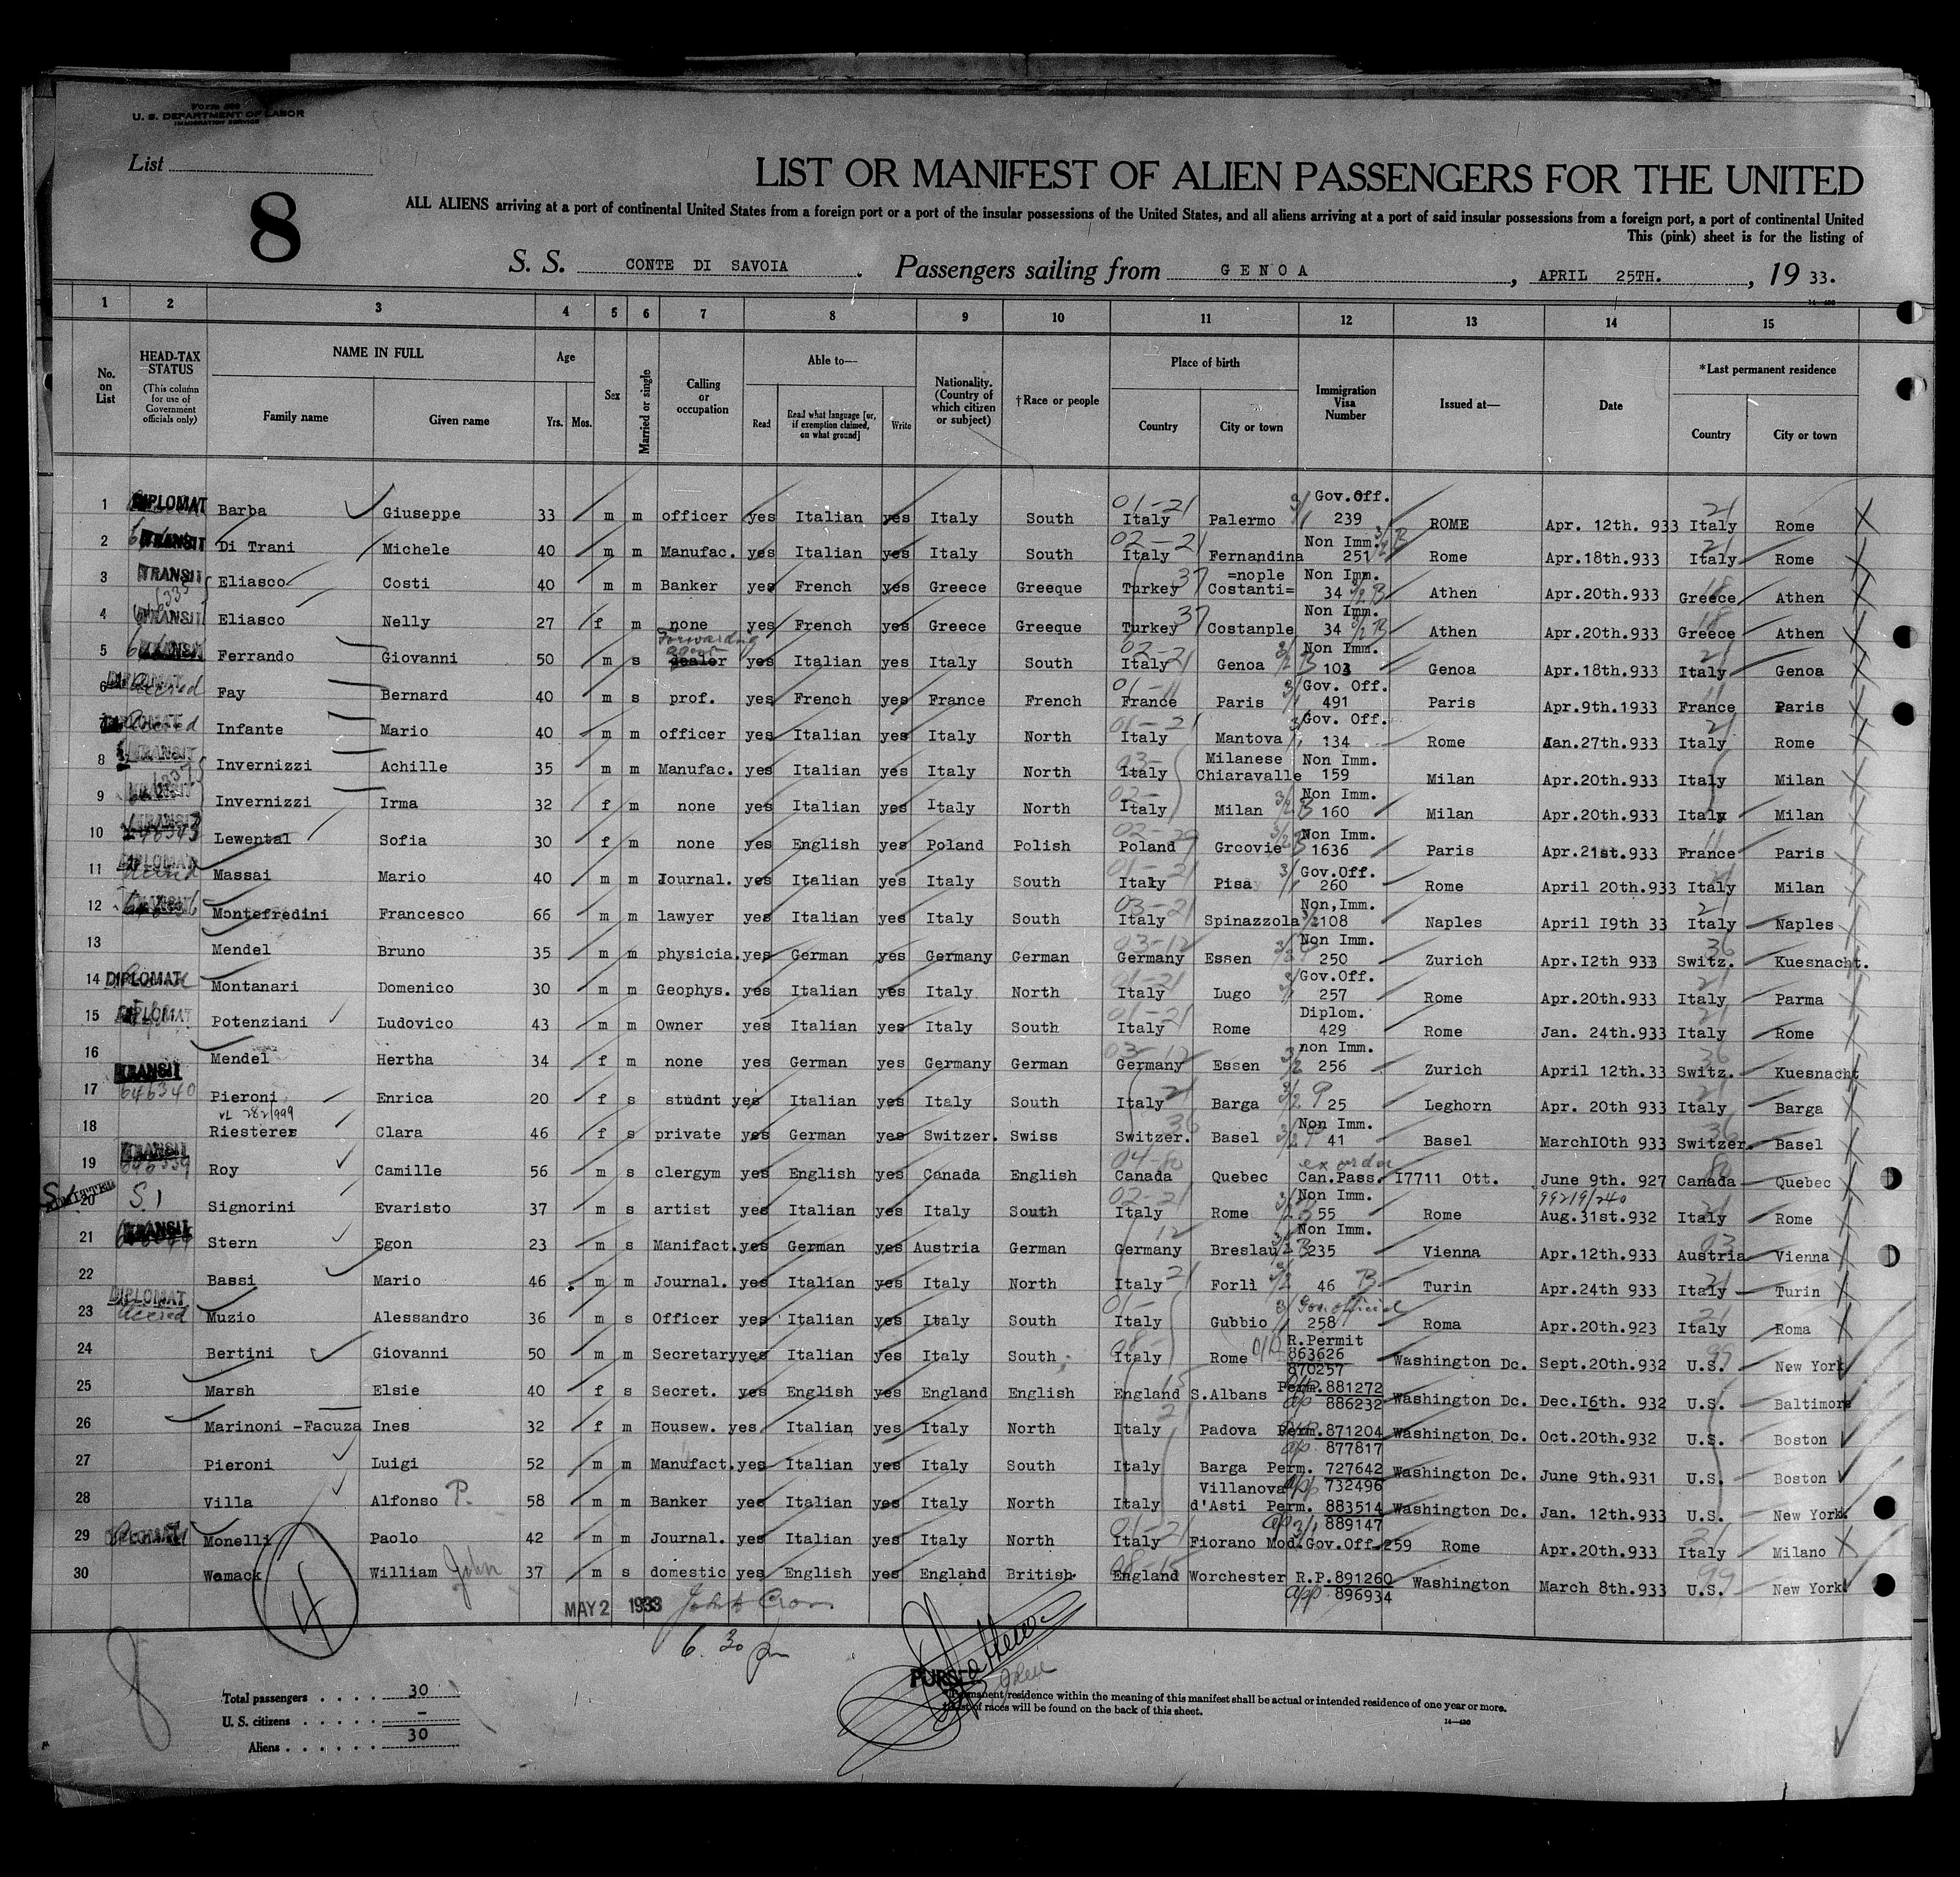 Form 500
U. S. DEPARTMENT OF LABOR
IMMIGRATION SERVICE
List
8
LIST OR MANIFEST OF ALIEN PASSENGERS FOR THE UNITED
ALL ALIENS arriving at a port of continental United States from a foreign port or a port of the insular possessions of the United States, and all aliens arriving at a port of said insular possessions from a foreign port, a port of continental United
This (pink) sheet is for the listing of
S. S. CONTE DI SAVOIA. Passengers sailing from GENOA, APRIL 25TH., 19 33.
1 2 3 4 5 6 7 8 9 10 11 12 13 14 15
No. on List HEAD-TAX STATUS (This column for use of Government officials only) NAME IN FULL Family name Given name Age Yrs. Mos. Sex Married or single Calling or occupation Able to— Read Read what language [or, if exemption claimed, on what ground] Write Nationality. (Country of which citizen or subject) †Race or people Place of birth Country City or town Immigration Visa Number Issued at— Date *Last permanent residence Country City or town
1 DIPLOMAT Barba Giuseppe 33 m m officer yes Italian yes Italy South 01-21 Italy Palermo Gov.Off. 239 ROME Apr. 12th. 933 21 Italy Rome
2 TRANSIT Di Trani Michele 40 m m Manufac. yes Italian yes Italy South 02-21 Italy Fernandina Non Imm. 251 Rome Apr.18th.933 21 Italy Rome
3 TRANSIT Eliasco Costi 40 m m Banker yes French yes Greece Greeque Turkey 37 =nople Costanti= Non Imm. 34 Athen Apr.20th.933 Greece Athen
4 TRANSIT Eliasco Nelly 27 f m none yes French yes Greece Greeque Turkey 37 Costanple Non Imm. 34 Athen Apr.20th.933 Greece Athen
5 TRANSIT Ferrando Giovanni 50 m s Forwarding dealer yes Italian yes Italy South 02-21 Italy Genoa Non Imm. 103 Genoa Apr.18th.933 21 Italy Genoa
6 DIPLOMAT Fay Bernard 40 m s prof. yes French yes France French 01-11 France Paris Gov. Off. 491 Paris Apr.9th.1933 11 France Paris
7 DIPLOMAT Infante Mario 40 m m officer yes Italian yes Italy North 01-21 Italy Mantova Gov. Off. 134 Rome Jan.27th.933 21 Italy Rome
8 TRANSIT Invernizzi Achille 35 m m Manufac. yes Italian yes Italy North 03- Italy Milanese Chiaravalle Non Imm. 159 Milan Apr.20th.933 Italy Milan
9 TRANSIT Invernizzi Irma 32 f m none yes Italian yes Italy North 02- Italy Milan Non Imm. 160 Milan Apr.20th.933 Italy Milan
10 TRANSIT Lewental Sofia 30 f m none yes English yes Poland Polish 02-29 Poland Grcovie Non Imm. 1636 Paris Apr.21st.933 11 France Paris
11 DIPLOMAT Massai Mario 40 m m Journal. yes Italian yes Italy South 01-21 Italy Pisa Gov.Off. 260 Rome April 20th.933 Italy Milan
12 TRANSIT Montefredini Francesco 66 m m lawyer yes Italian yes Italy South 03-21 Italy Spinazzola Non,Imm. 108 Naples April I9th 33 21 Italy Naples
13 Mendel Bruno 35 m m physicia. yes German yes Germany German 03-12 Germany Essen Non Imm. 250 Zurich Apr.I2th 933 36 Switz. Kuesnacht.
14 DIPLOMAT Montanari Domenico 30 m m Geophys. yes Italian yes Italy North 01-21 Italy Lugo Gov.Off. 257 Rome Apr.20th.933 21 Italy Parma
15 DIPLOMAT Potenziani Ludovico 43 m m Owner yes Italian yes Italy South 01-21 Italy Rome Diplom. 429 Rome Jan. 24th.933 21 Italy Rome
16 Mendel Hertha 34 f m none yes German yes Germany German 03-12 Germany Essen non Imm. 256 Zurich April 12th.33 36 Switz. Kuesnacht
17 TRANSIT 646340 Pieroni Enrica 20 f s studnt yes Italian yes Italy South Italy 21 Barga 25 Leghorn Apr. 20th 933 21 Italy Barga
18 VL 282/999 Riesterer Clara 46 f s private yes German yes Switzer. Swiss 36 Switzer. Basel Non Imm. 41 Basel MarchI0th 933 36 Switzer. Basel
19 TRANSIT 646339 Roy Camille 56 m s clergym yes English yes Canada English 04-80 Canada Quebec ex order Can.Pass. I7711 Ott. June 9th. 927 80 Canada Quebec
20 ADMITTED S.I Signorini Evaristo 37 m s artist yes Italian yes Italy South 02-21 Italy Rome Non Imm. 55 Rome 99219/240 Aug.31st.932 21 Italy Rome
21 TRANSIT Stern Egon 23 m s Manifact. yes German yes Austria German 12 Germany Breslau Non Imm. 235 Vienna Apr.12th.933 03 Austria Vienna
22 Bassi Mario 46 m m Journal. yes Italian yes Italy North Italy 21 Forlì 46 B Turin Apr.24th 933 21 Italy Turin
23 DIPLOMAT Accred Muzio Alessandro 36 m s Officer yes Italian yes Italy South 01- Italy Gubbio Gov. official 258 Roma Apr.20th.923 21 Italy Roma
24 Bertini Giovanni 50 m m Secretary yes Italian yes Italy South Italy Rome R.Permit 863626 870257 Washington Dc. Sept.20th.932 99 U.S. New York
25 Marsh Elsie 40 f s Secret. yes English yes England English England 15 S.Albans Perm.881272 app 886232 Washington Dc. Dec.I6th. 932 U.S. Baltimore
26 Marinoni -Facuza Ines 32 f m Housew. yes Italian yes Italy North Italy Padova Perm.871204 app. 877817 Washington Dc. Oct.20th.932 U.S. Boston
27 Pieroni Luigi 52 m m Manufact. yes Italian yes Italy South Italy Barga Perm. 727642 app 732496 Washington Dc. June 9th.931 U.S. Boston
28 Villa Alfonso P. 58 m m Banker yes Italian yes Italy North Italy Villanova d'Asti Perm. 883514 app 889147 Washington Dc. Jan. 12th.933 U.S. New York.
29 Monelli Paolo 42 m m Journal. yes Italian yes Italy North 01-21 Italy Fiorano Mod. Gov.Off-259 Rome Apr.20th.933 21 Italy Milano
30 Womack William John 37 m s domestic yes English yes England British 08-15 England Worchester R.P.891260 app 896934 Washington March 8th.933 99 U.S. New York
4
MAY 2 1933
6.30 pm
8
PURSER
Total passengers . . . . 30
U. S. citizens . . . . . –
Aliens . . . . . . 30
*Permanent residence within the meaning of this manifest shall be actual or intended residence of one year or more.
†List of races will be found on the back of this sheet.
14—430